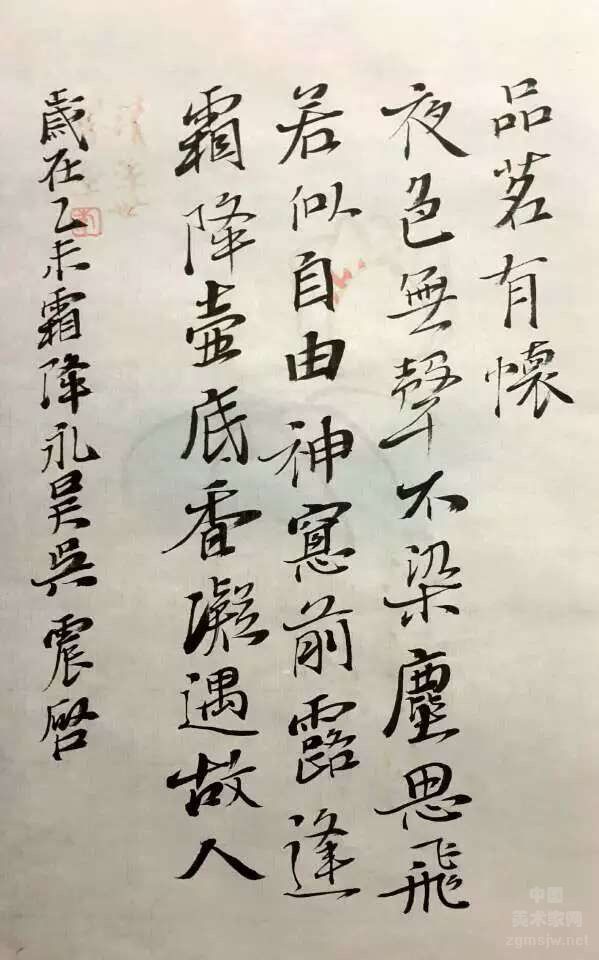 品茗有懷
夜色無聲不梁塵思飛
若似自由神窓前露逢
霜降壺底香凝遇故人
歲在乙未霜降永昊吳震啓
中国
美术家网
zgmsjw.net